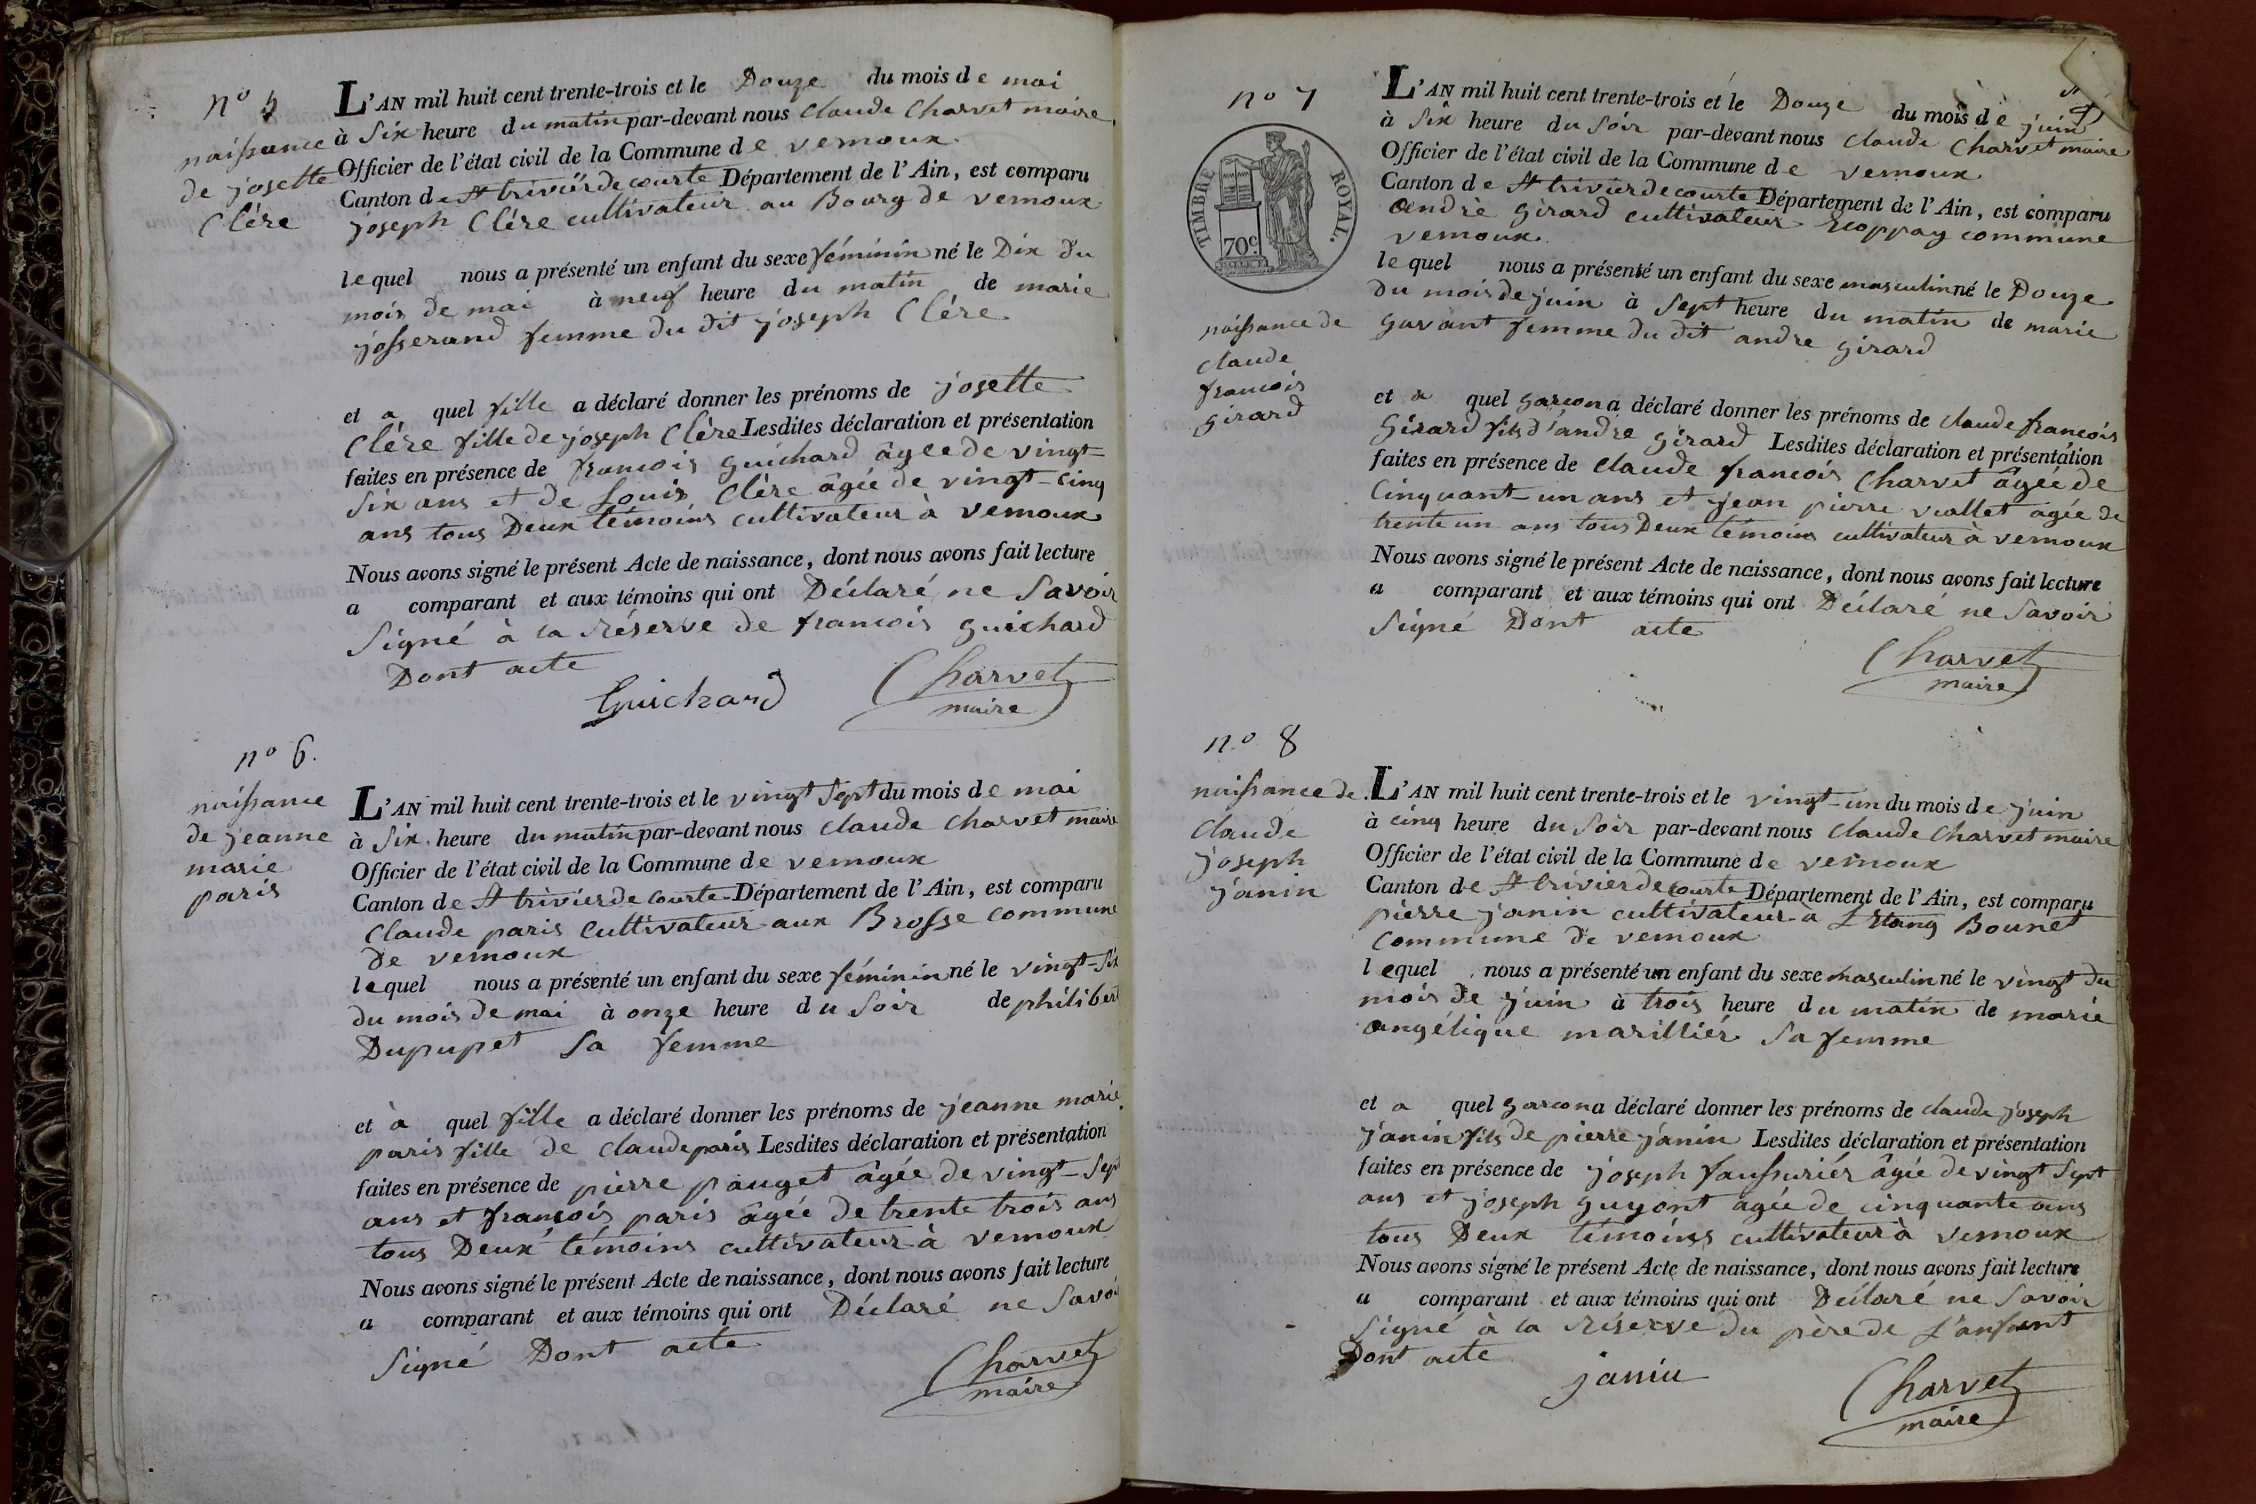 n° 5
naissance
de josette
Clére
L'AN mil huit cent trente-trois et le Douze du mois de mai
à Six heure du matin par-devant nous Claude Charvet maire
Officier de l'état civil de la Commune de vernoux
Canton de St trivier de courte Département de l'Ain, est comparu
joseph Clére cultivateur au Bourg de vernoux
lequel nous a présenté un enfant du sexe féminin né le Dix du
mois de mai à neuf heure du matin de marie
josserand femme du dit joseph Clére
et a quel fille a déclaré donner les prénoms de josette
Clére fille de joseph Clére Lesdites déclaration et présentation
faites en présence de francois guichard âgée de vingt-
Six ans et de Louis Clére âgée de vingt-cinq
ans tous Deux témoins cultivateur à vernoux
Nous avons signé le présent Acte de naissance, dont nous avons fait lecture
a comparant et aux témoins qui ont Déclaré ne Savoir
Signé à la réserve de francois guichard
Dont acte
Guichard
Charvet
maire
n° 6.
naissance
de jeanne
marie
paris
L'AN mil huit cent trente-trois et le vingt Sept du mois de mai
à Six heure du matin par-devant nous Claude Charvet maire
Officier de l'état civil de la Commune de vernoux
Canton de St trivier de courte Département de l'Ain, est comparu
Claude paris cultivateur aux Brosse commune
de vernoux
lequel nous a présenté un enfant du sexe féminin né le vingt-Six
du mois de mai à onze heure du Soir de philibert
Dupupet Sa femme
et à quel fille a déclaré donner les prénoms de jeanne marie
paris fille de Claude paris Lesdites déclaration et présentation
faites en présence de pierre pauget âgée de vingt-Sept
ans et francois paris âgée de trente trois ans
tous Deux témoins cultivateur à vernoux
Nous avons signé le présent Acte de naissance, dont nous avons fait lecture
a comparant et aux témoins qui ont Déclaré ne Savoir
Signé Dont acte
Charvet
maire
n° 7
TIMBRE ROYAL.
70c
naissance de
claude
francois
girard
L'AN mil huit cent trente-trois et le Douze du mois de juin
à Six heure du Soir par-devant nous Claude Charvet maire
Officier de l'état civil de la Commune de vernoux
Canton de St trivier de courte Département de l'Ain, est comparu
andré girard cultivateur Ecoppay commune
vernoux
lequel nous a présenté un enfant du sexe masculin né le Douze
du mois de juin à Sept heure du matin de marie
gavant femme du dit andre girard
et a quel garcon a déclaré donner les prénoms de claude francois
girard fils d'andre girard Lesdites déclaration et présentation
faites en présence de Claude francois Charvet âgée de
Cinquant-un ans et jean pierre viallet agée de
trente un ans tous Deux témoins cultivateur à vernoux
Nous avons signé le présent Acte de naissance, dont nous avons fait lecture
a comparant et aux témoins qui ont Déclaré ne Savoir
Signé Dont acte
Charvet
maire
n° 8
naissance de
claude
joseph
janin
L'AN mil huit cent trente-trois et le vingt-un du mois de juin
à cinq heure du Soir par-devant nous Claude Charvet maire
Officier de l'état civil de la Commune de vernoux
Canton de St trivier de courte Département de l'Ain, est comparu
pierre janin cultivateur à L'Etang Bounet
commune de vernoux
lequel nous a présenté un enfant du sexe masculin né le vingt du
mois de juin à trois heure du matin de marie
angélique marilliér Sa femme
et a quel garcon a déclaré donner les prénoms de claude joseph
janin fils de pierre janin Lesdites déclaration et présentation
faites en présence de joseph faussuriér âgée de vingt Sept
ans et joseph guyont agée de cinquante ans
tous Deux témoins cultivateur à vernoux
Nous avons signé le présent Acte de naissance, dont nous avons fait lecture
a comparant et aux témoins qui ont Déclaré ne Savoir
Signé à la réserve du père de L'anfant
Dont acte
janin
Charvet
maire